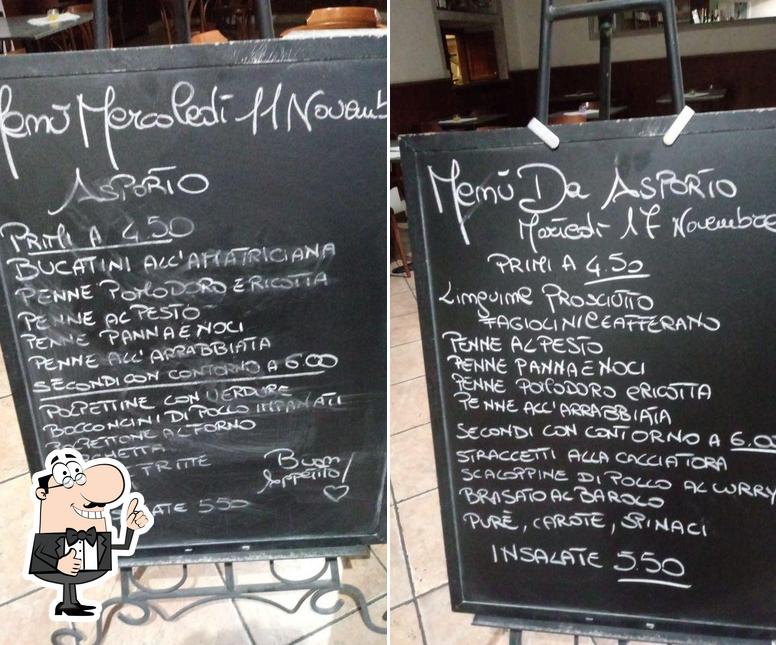 Menù Mercoledì 11 Novemb
Asporto
PRIMI A 4.50
BUCATINI ALL'AMATRICIANA
PENNE POMODORO E RICOTTA
PENNE AL PESTO
PENNE PANNA E NOCI
PENNE ALL'ARRABBIATA
SECONDI CON CONTORNO A 6.00
POLPETTINE CON VERDURE
BOCCONCINI DI POLLO IMPANATI
POLPETTONE AL FORNO
FRITTE
Buon
Appetito!
ATE 5.50
Menù Da Asporto
Martedì 17 Novembre
PRIMI A 4.50
Linguine PROSCIUTTO
FAGIOLINI E ZAFFERANO
PENNE AL PESTO
PENNE PANNA E NOCI
PENNE POMODORO e RICOTTA
PENNE ALL'ARRABBIATA
SECONDI CON CONTORNO A 6.00
STRACCETTI ALLA CACCIATORA
SCALOPPINE DI POLLO AL CURRY
BRASATO AL BAROLO
PURÈ, CAROTE, SPINACI
INSALATE 5.50